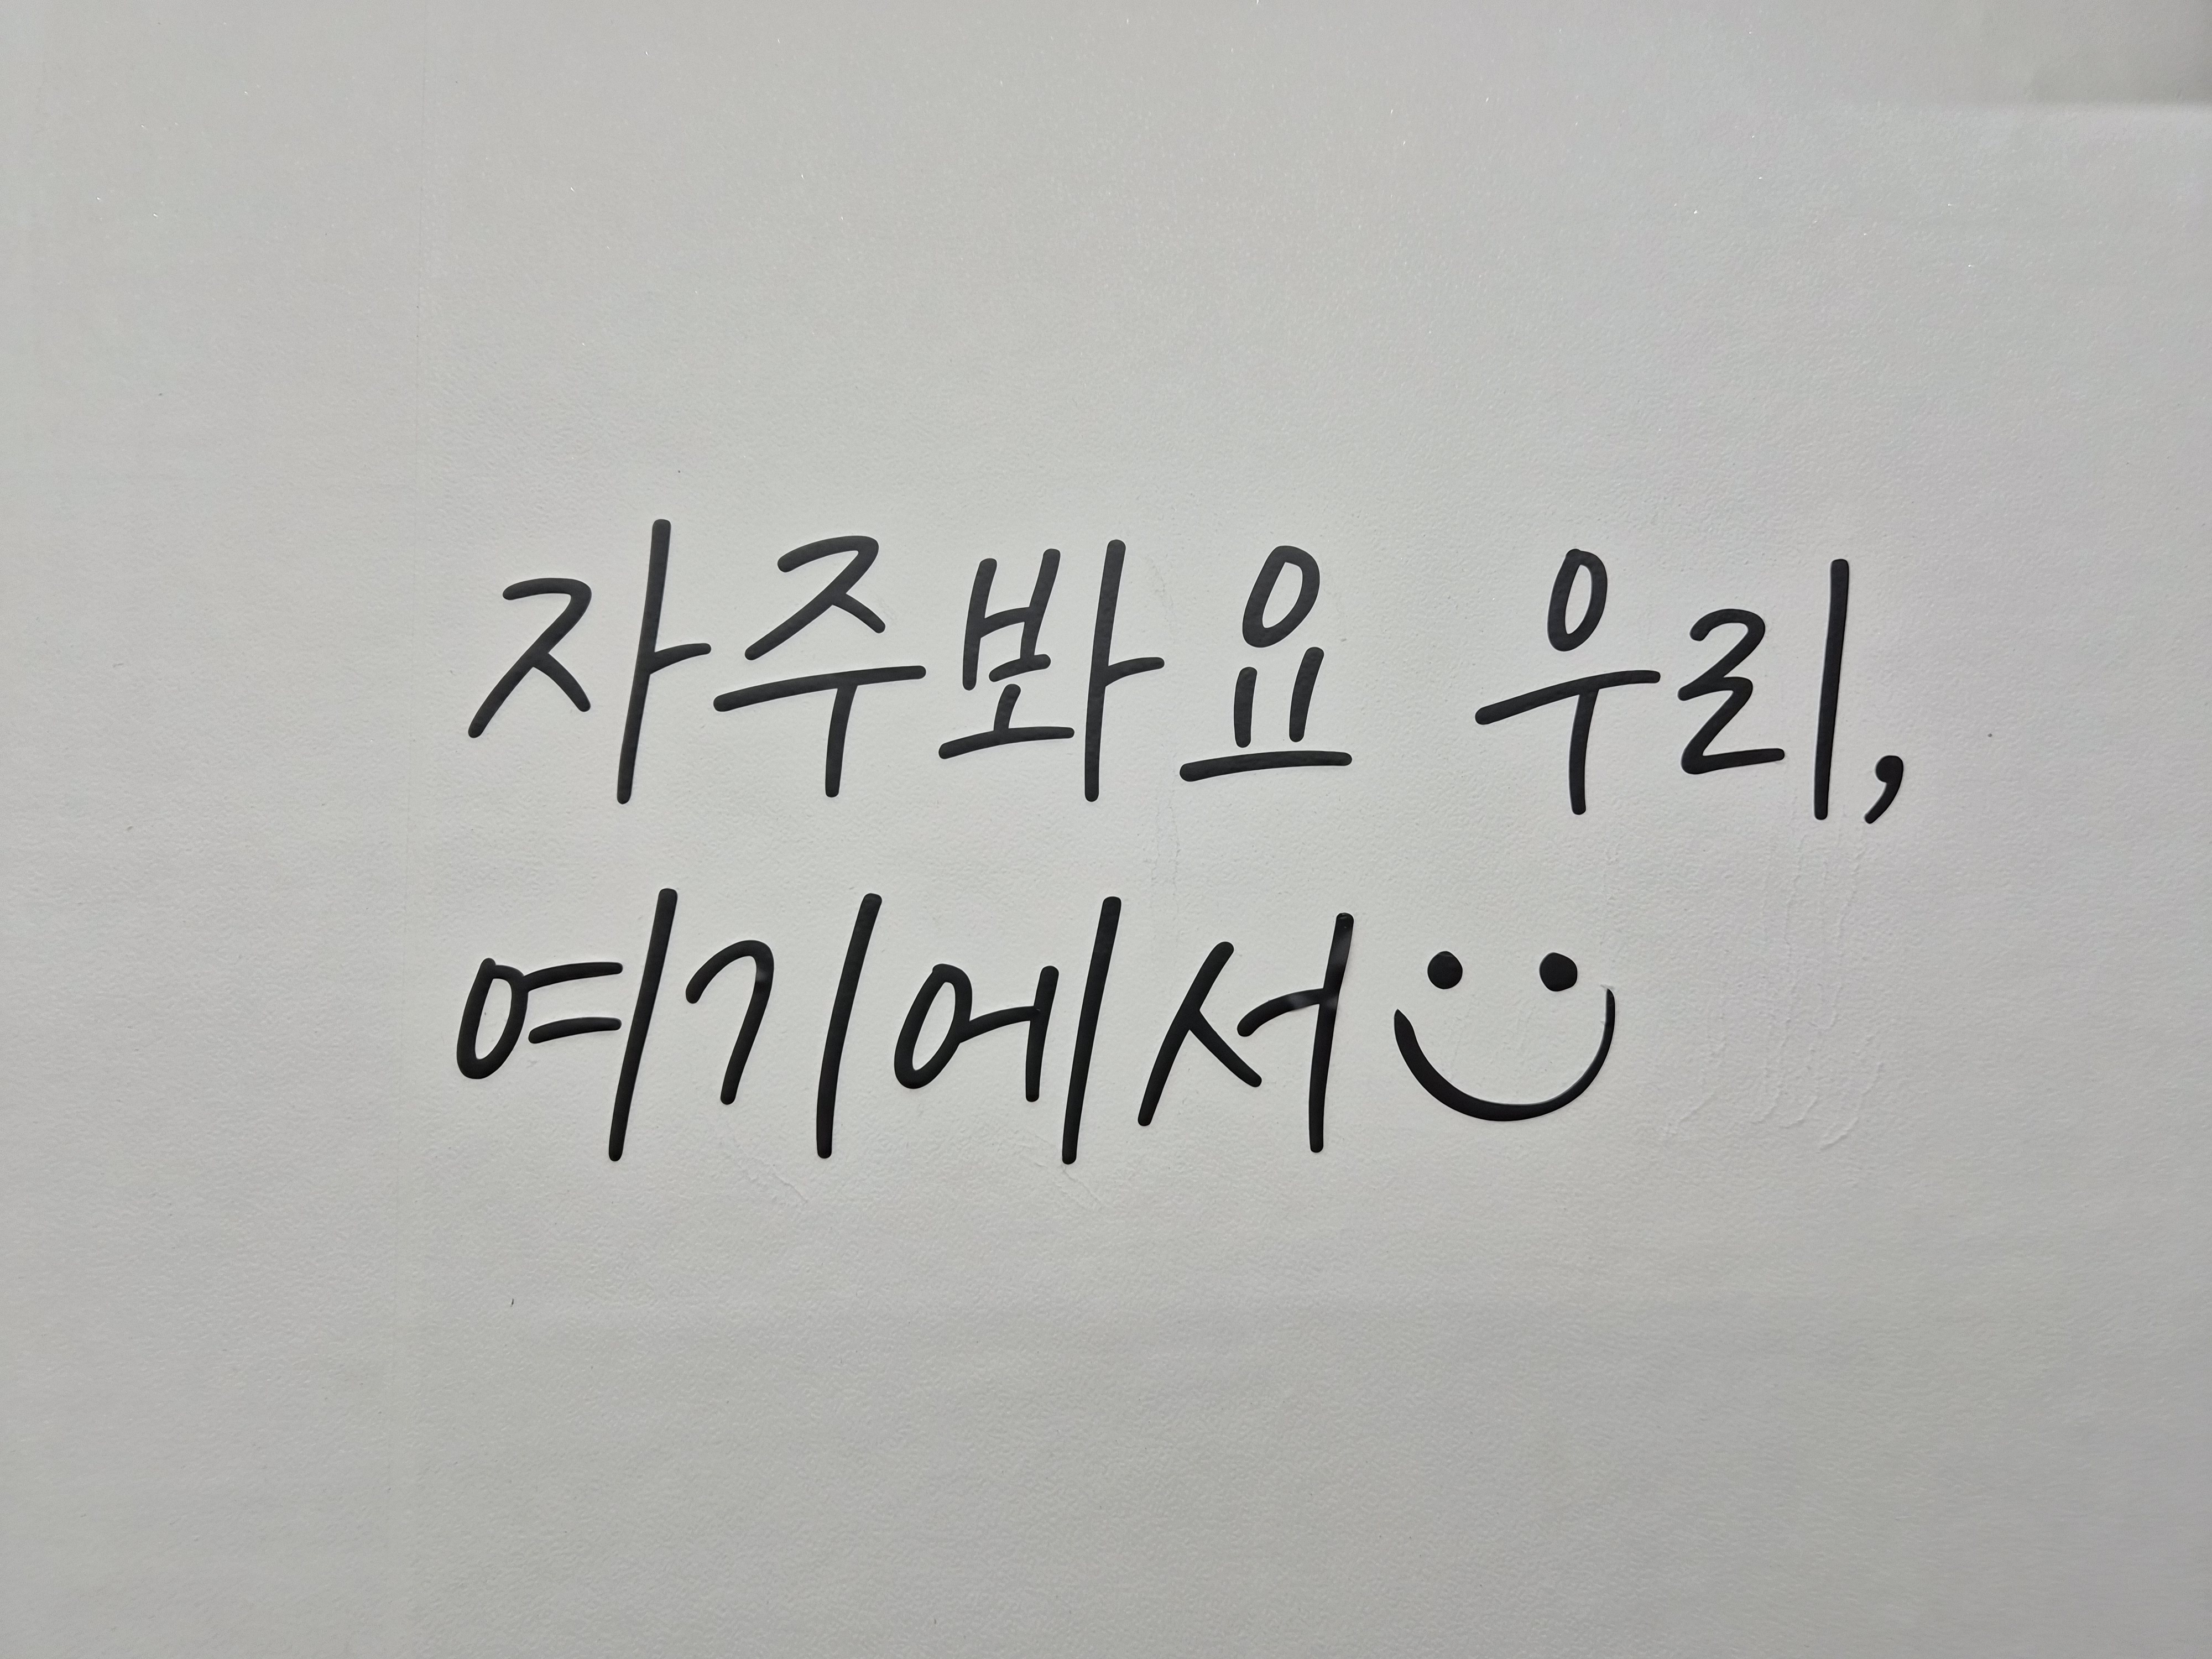 자주봐요 우리,
여기에서